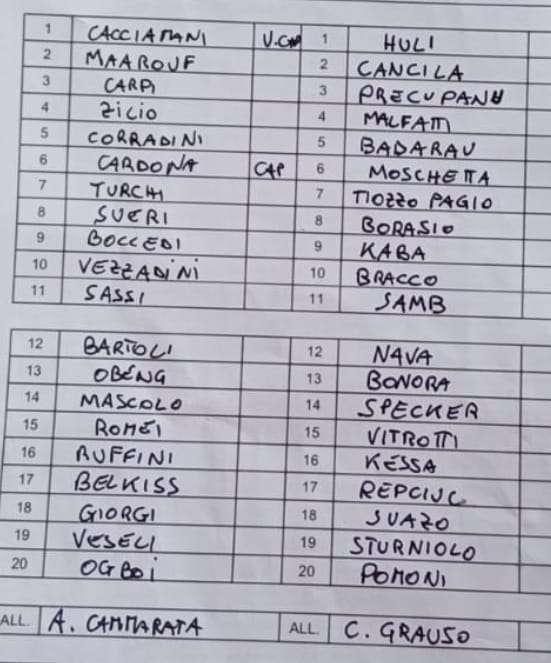 1 CACCIAMANI V.CAP 1 HULI
2 MAAROUF 2 CANCILA
3 CARPI 3 PRECUPANU
4 ZILIO 4 MALFATTI
5 CORRADINI 5 BADARAU
6 CARDONA CAP 6 MOSCHETTA
7 TURCHI 7 TIOZZO PAGIO
8 SUERI 8 BORASIO
9 BOCCEDI 9 KABA
10 VEZZADINI 10 BRACCO
11 SASSI 11 SAMB
12 BARTOLI 12 NAVA
13 OBENG 13 BONORA
14 MASCOLO 14 SPECKER
15 ROMEI 15 VITROTTI
16 RUFFINI 16 KESSA
17 BELKISS 17 REPCIUC
18 GIORGI 18 SUAZO
19 VESELI 19 STURNIOLO
20 OGBOI 20 POMONI
ALL. A. CAMMARATA ALL. C. GRAUSO